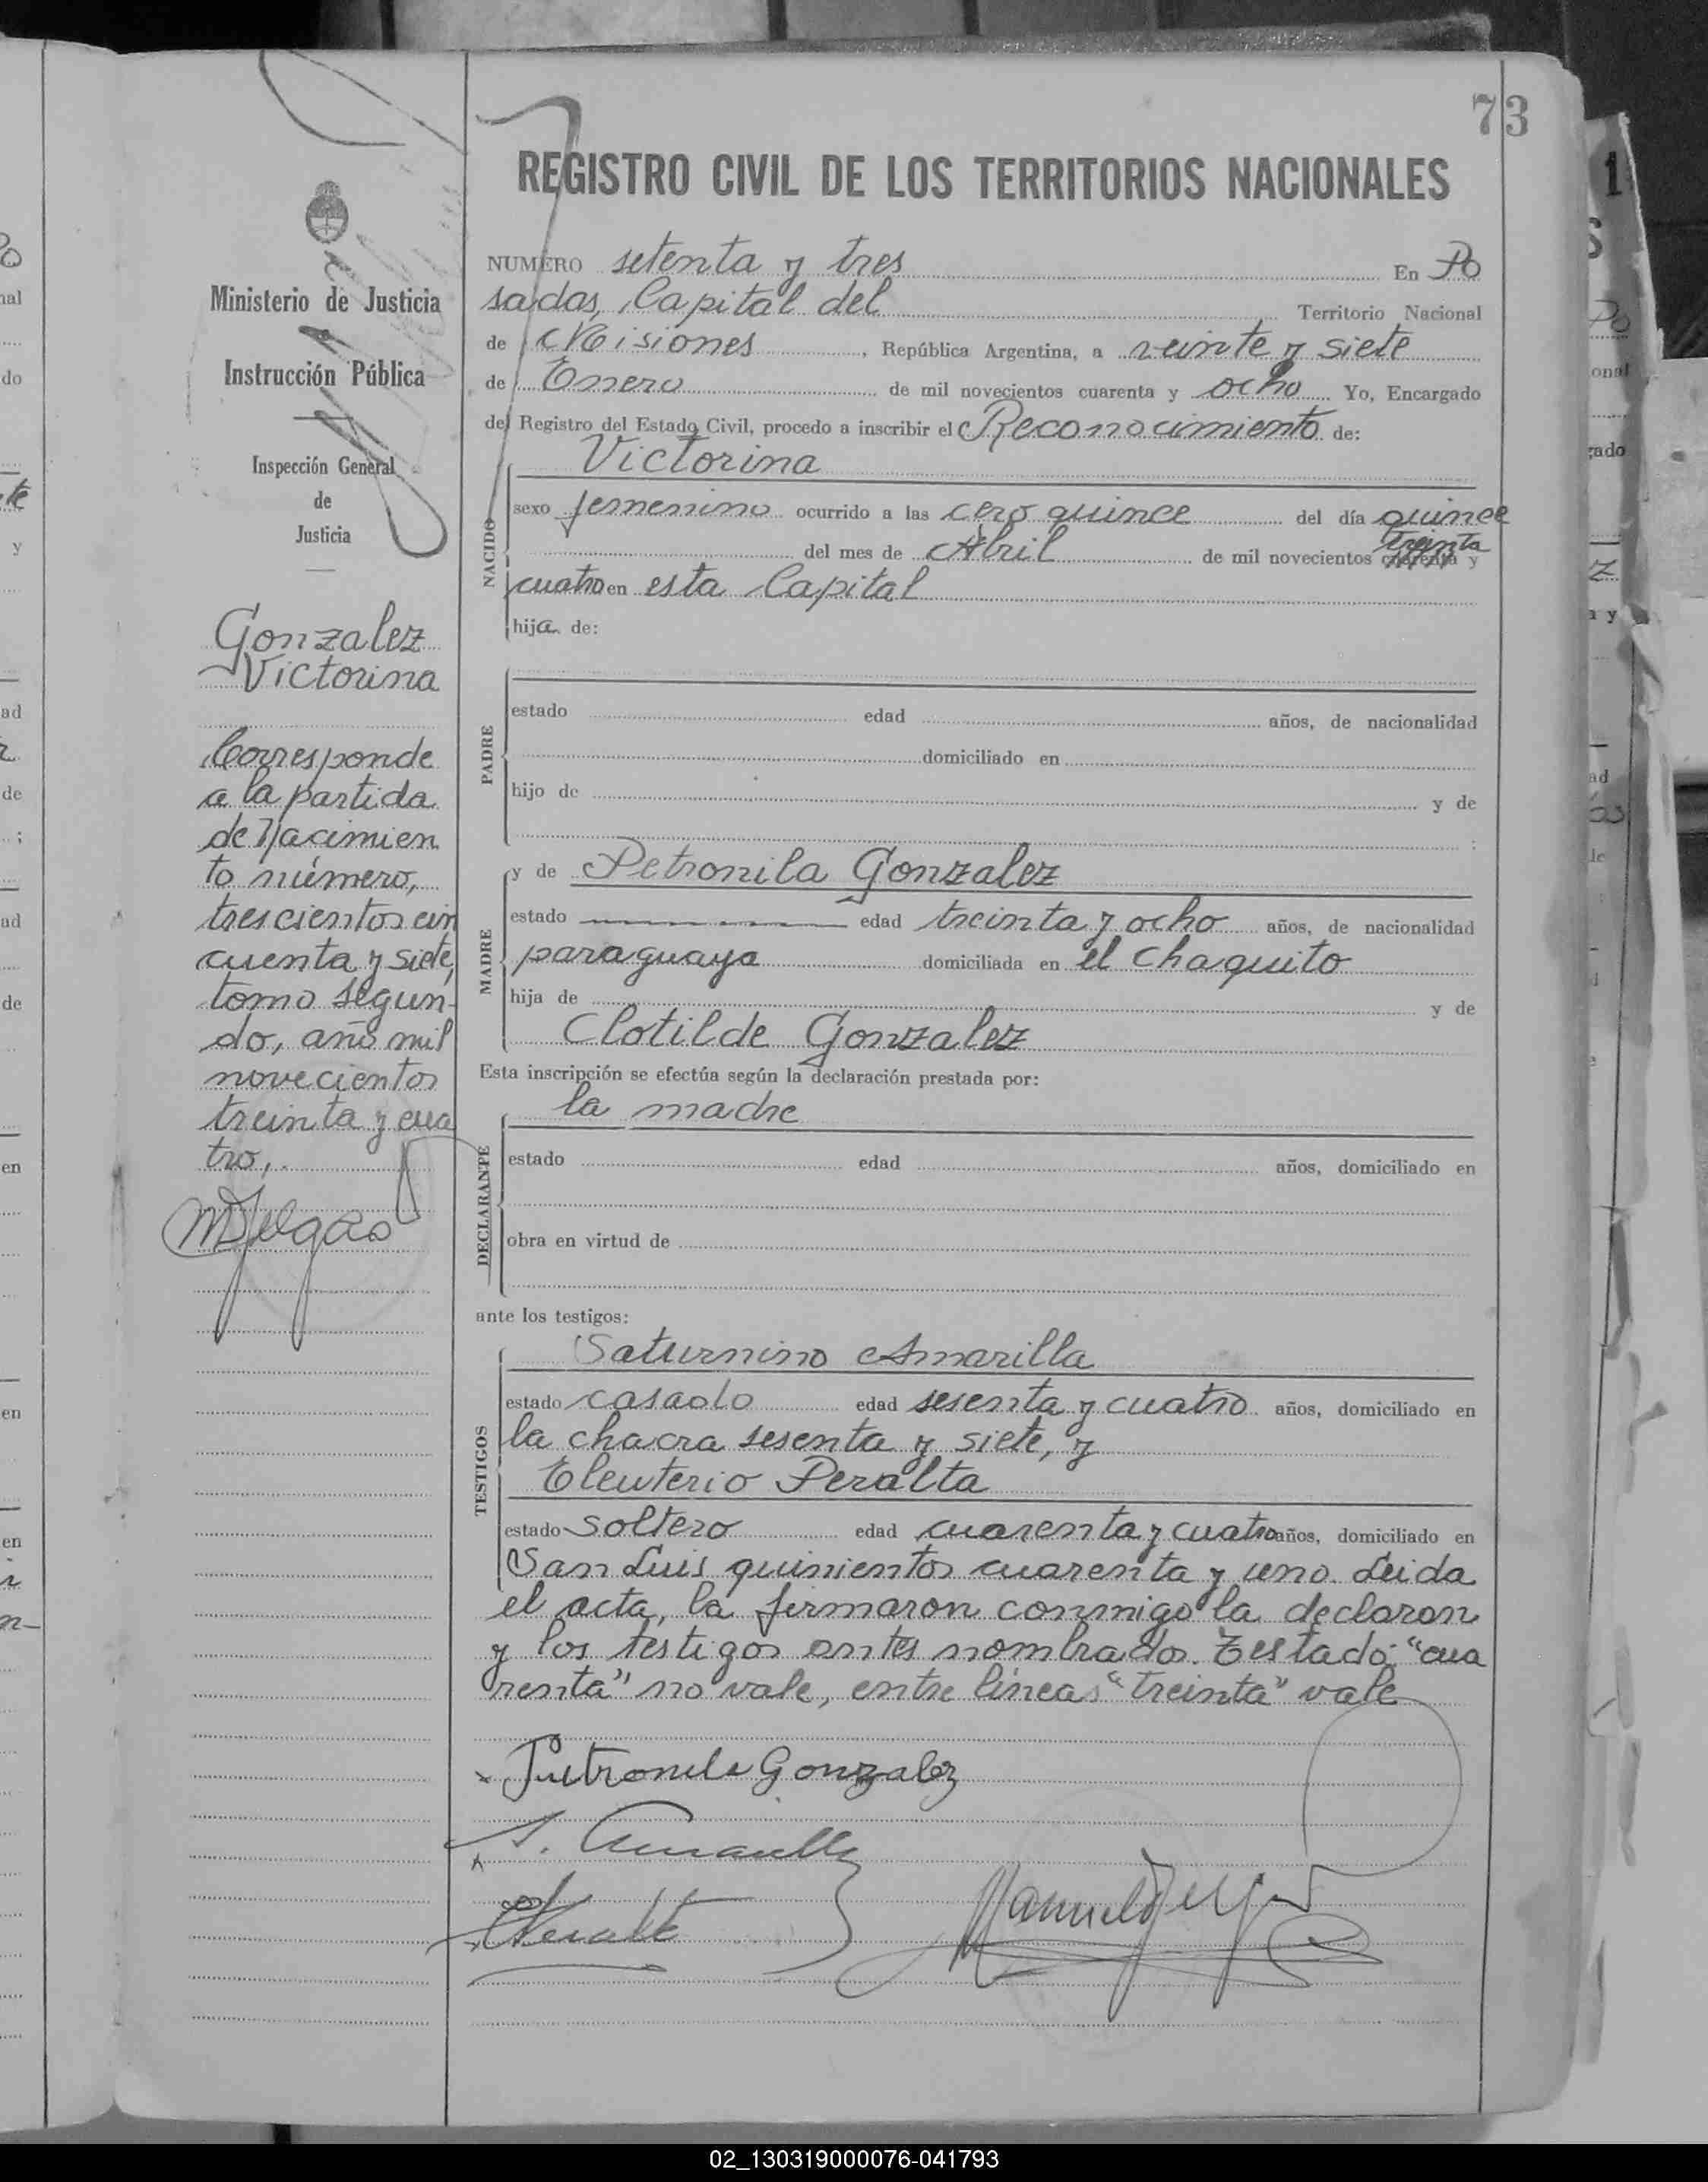 73
REGISTRO CIVIL DE LOS TERRITORIOS NACIONALES
Ministerio de Justicia
e
Instrucción Pública
Inspección General
de
Justicia
Gonzalez
Victorina
Corresponde
a la partida
de Nacimien
to número,
trescientos cin
cuenta y siete,
tomo segun-
do, año mil
novecientos
treinta y cua
tro,.
NUMERO setenta y tres En Po
sadas, Capital del Territorio Nacional
de Misiones, República Argentina, a veinte y siete
de Enero de mil novecientos cuarenta y ocho Yo, Encargado
del Registro del Estado Civil, procedo a inscribir el Reconocimiento de:
NACIDO
Victorina
sexo femenino ocurrido a las cero quince del día quince
del mes de Abril de mil novecientos cuarenta treinta y
cuatro en esta Capital
hija de:
PADRE
estado edad años, de nacionalidad
domiciliado en
hijo de y de
;
MADRE
y de Petronila Gonzalez
estado edad treinta y ocho años, de nacionalidad
paraguaya domiciliada en el Chaquito
hija de y de
Clotilde Gonzalez
Esta inscripción se efectúa según la declaración prestada por:
DECLARANTE
la madre
estado edad años, domiciliado en
obra en virtud de
ante los testigos:
TESTIGOS
Saturnino Amarilla
estado casado edad sesenta y cuatro años, domiciliado en
la chacra sesenta y siete, y
Eleuterio Peralta
estado soltero edad cuarenta y cuatro años, domiciliado en
San Luis quinientos cuarenta y uno. Leida
el acta, la firmaron conmigo la declaran
y los testigos antes nombrados. Testado: "cua
renta" no vale, entre lineas "treinta" vale
Petronila Gonzalez
S. Amarilla
02_130319000076-041793